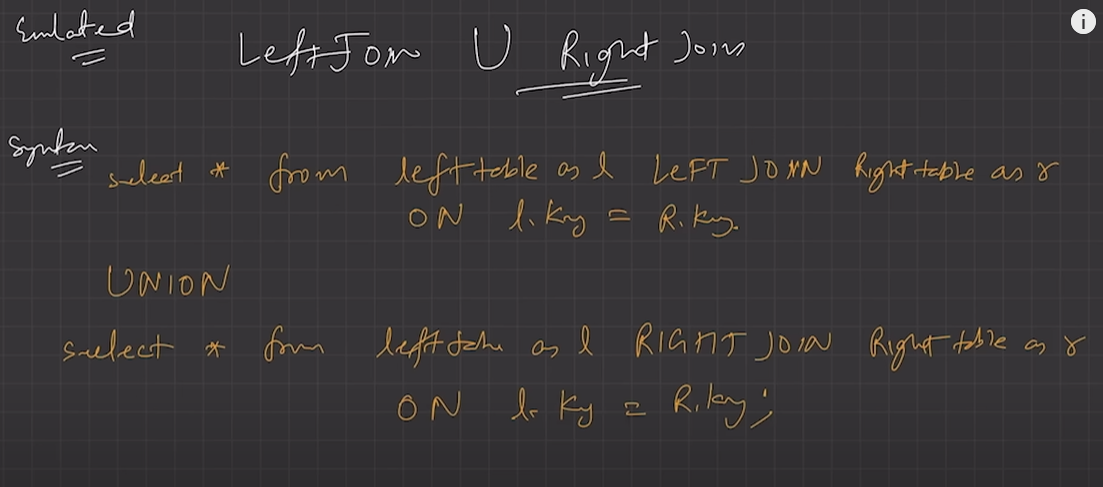 Emlated
LeftJoin U Right Join
Syntax
select * from lefttable as l LEFT JOIN Righttable as r
ON l.key = R.key.
UNION
select * from lefttable as l RIGHT JOIN Righttable as r
ON l.key = R.key;